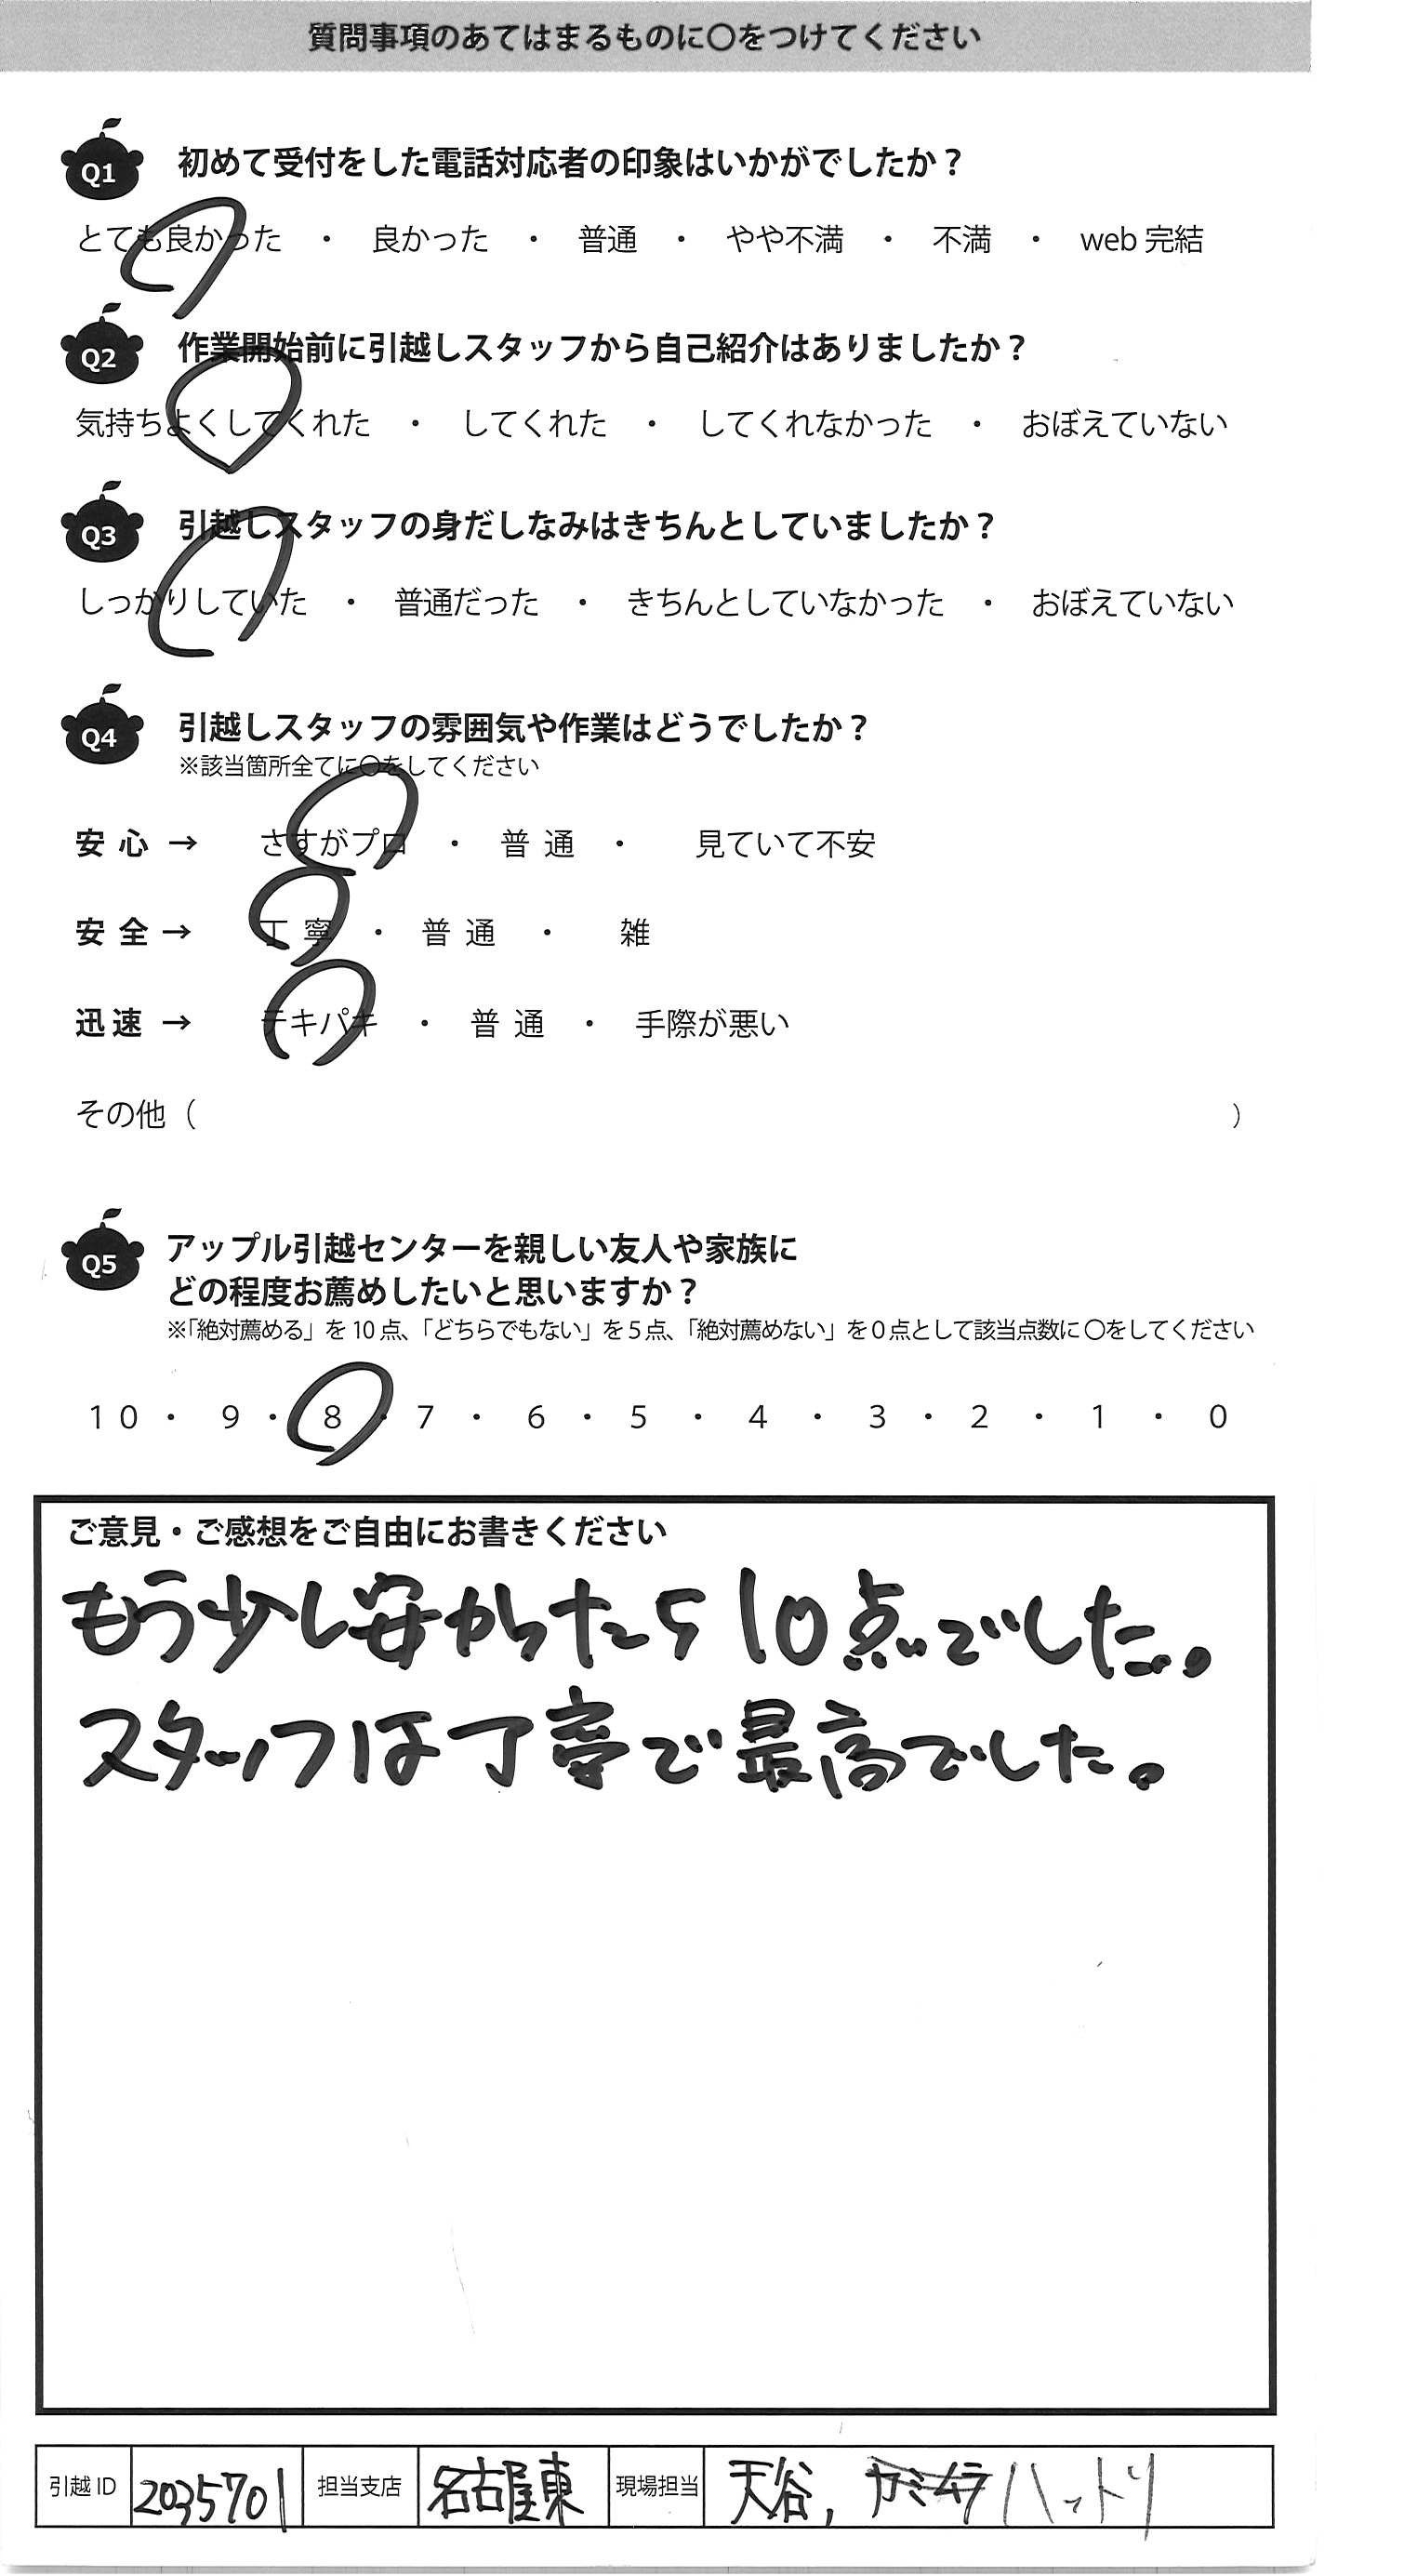 質問事項のあてはまるものに〇をつけてください
Q1 初めて受付をした電話対応者の印象はいかがでしたか？
とても良かった ・ 良かった ・ 普通 ・ やや不満 ・ 不満 ・ web 完結
Q2 作業開始前に引越しスタッフから自己紹介はありましたか？
気持ちよくしてくれた ・ してくれた ・ してくれなかった ・ おぼえていない
Q3 引越しスタッフの身だしなみはきちんとしていましたか？
しっかりしていた ・ 普通だった ・ きちんとしていなかった ・ おぼえていない
Q4 引越しスタッフの雰囲気や作業はどうでしたか？
※該当箇所全てに〇をしてください
安心 → さすがプロ ・ 普通 ・ 見ていて不安
安全 → 丁寧 ・ 普通 ・ 雑
迅速 → テキパキ ・ 普通 ・ 手際が悪い
その他（ ）
Q5 アップル引越センターを親しい友人や家族に
どの程度お薦めしたいと思いますか？
※「絶対薦める」を 10 点、「どちらでもない」を 5 点、「絶対薦めない」を 0 点として該当点数に 〇をしてください
10 ・ 9 ・ 8 ・ 7 ・ 6 ・ 5 ・ 4 ・ 3 ・ 2 ・ 1 ・ 0
ご意見・ご感想をご自由にお書きください
もう少し安かったら10点でした。
スタッフは丁寧で最高でした。
引越 ID 2035701 担当支店 名古屋東 現場担当 天谷, ハットリ